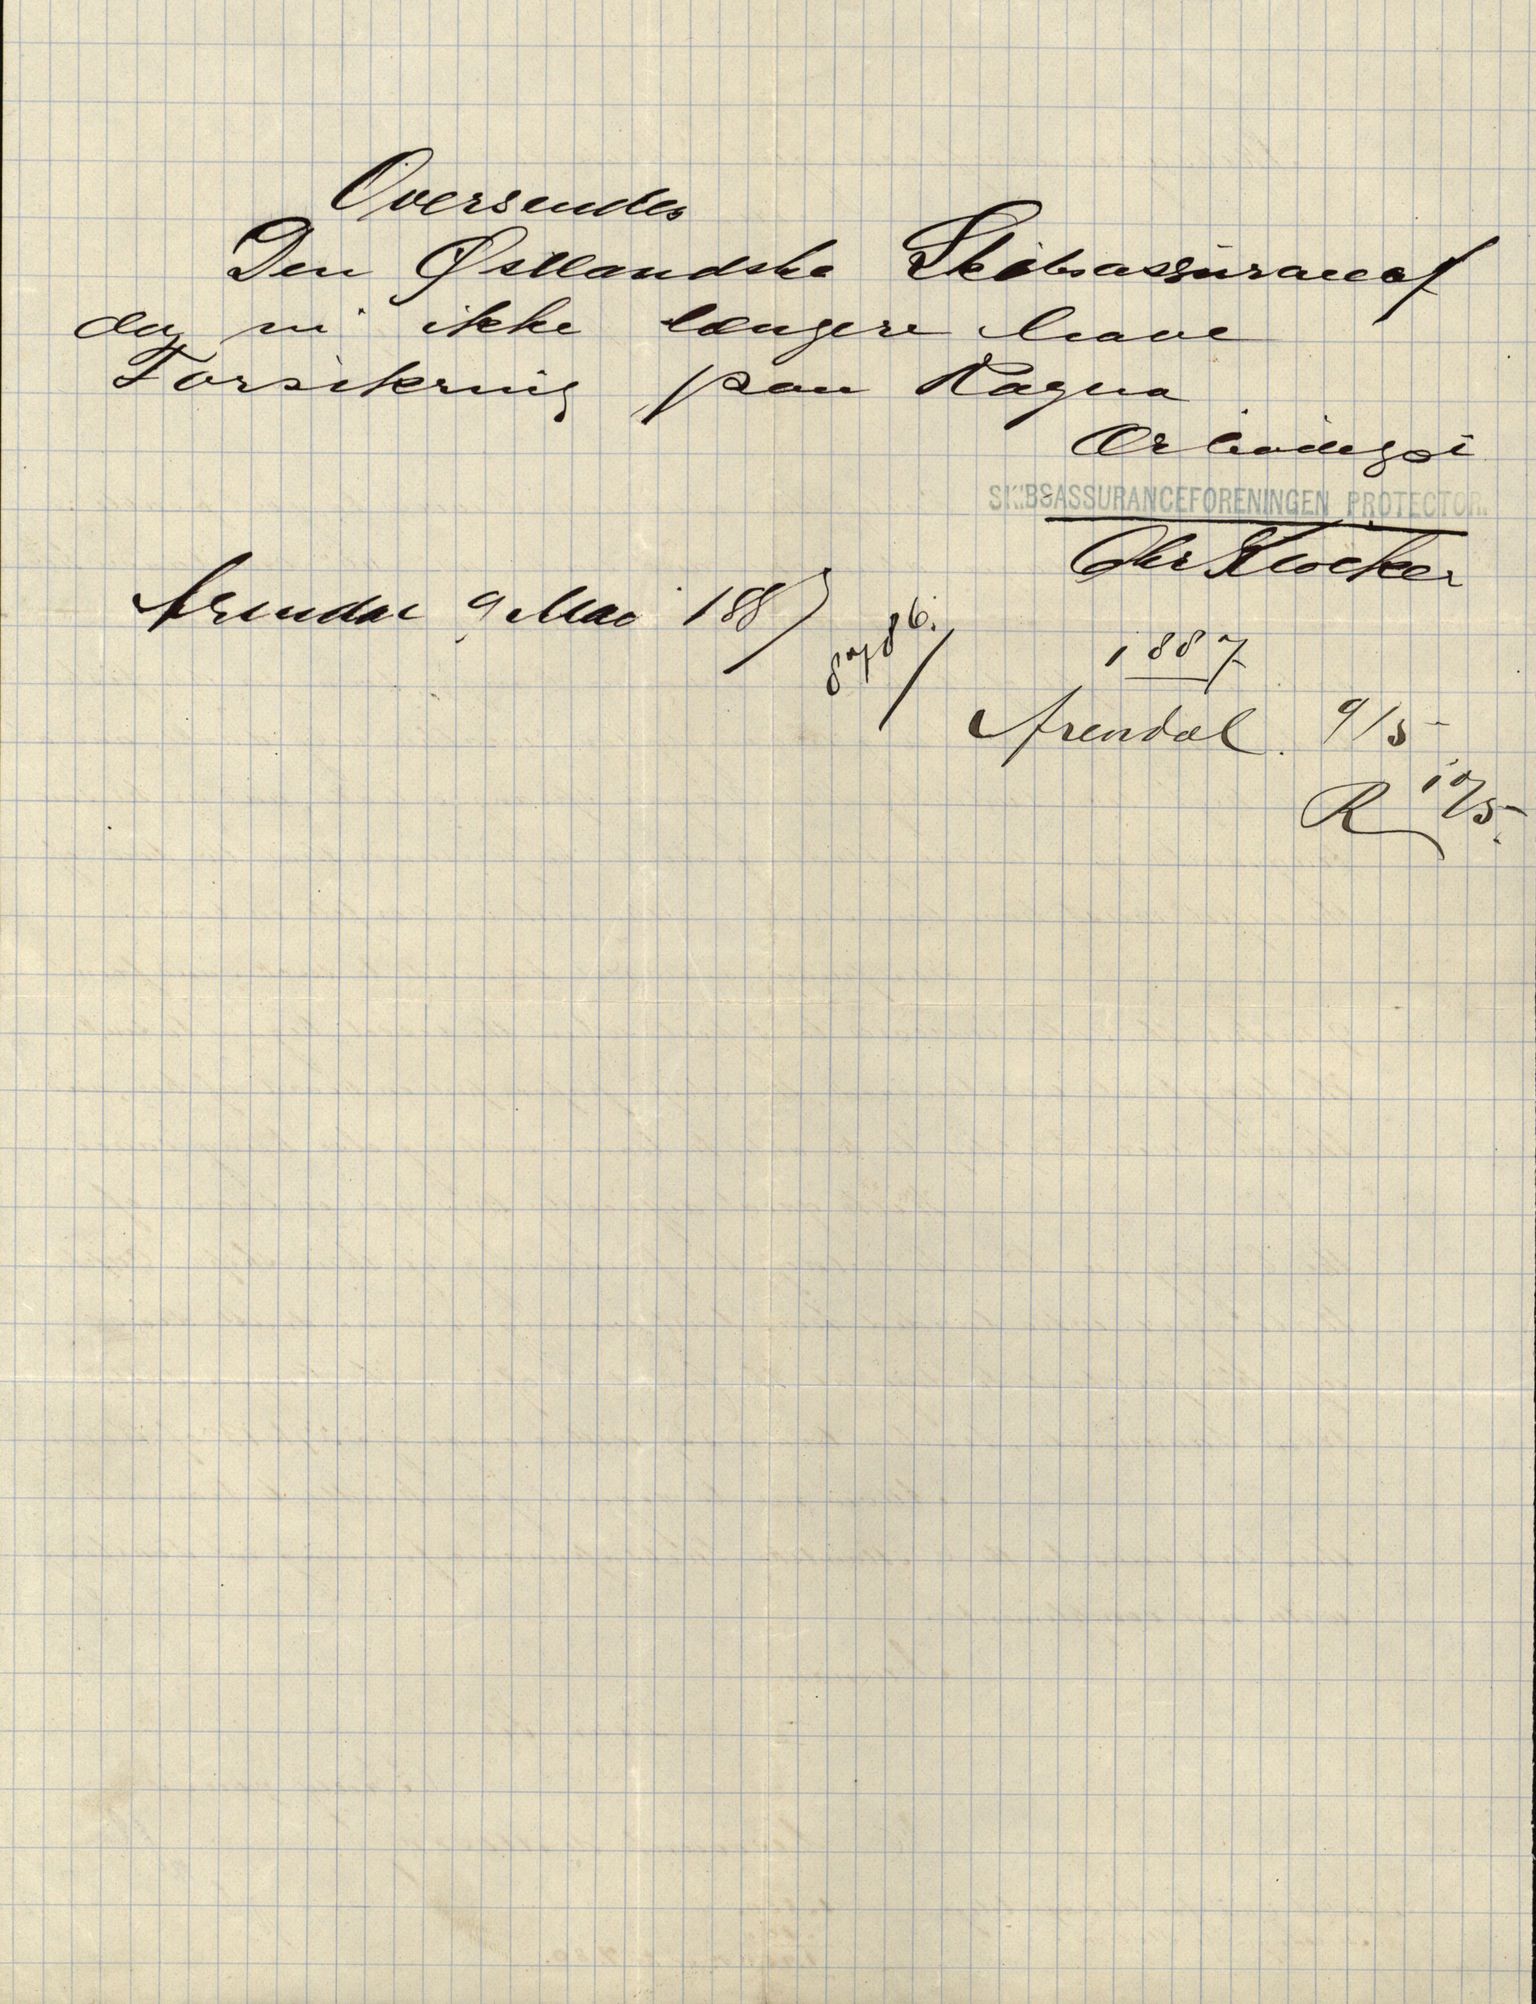 Oversendes
Den Østlandske Skibsassurancef
da vi ikke længere have
Forsikring paa Ragna
Ærbødigst
SKIBSASSURANCEFORENINGEN PROTECTOR.
Chr Klocker
Arendal 9 Mai 1887
87/86.
1887
Arendal. 9/5
R 10/5.